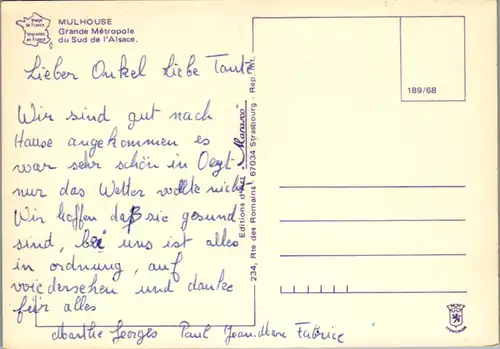 Image
de France
Imprimé
en France
MULHOUSE
Grande Métropole
du Sud de l'Alsace.
Lieber Onkel Liebe Tante
Wir sind gut nach
Hause angekommen es
war sehr schön in Oegt
nur das Wetter wollte nicht
Wir hoffen daß sie gesund
sind, bei uns ist alles
in ordnung, auf
wiedersehen und danke
für alles
Marthe Georges Paul Jean-Marc Fabrice
Editions d'Art "Marasco"
234, Rte des Romains 67034 Strasbourg - Rep. Int.
189/68